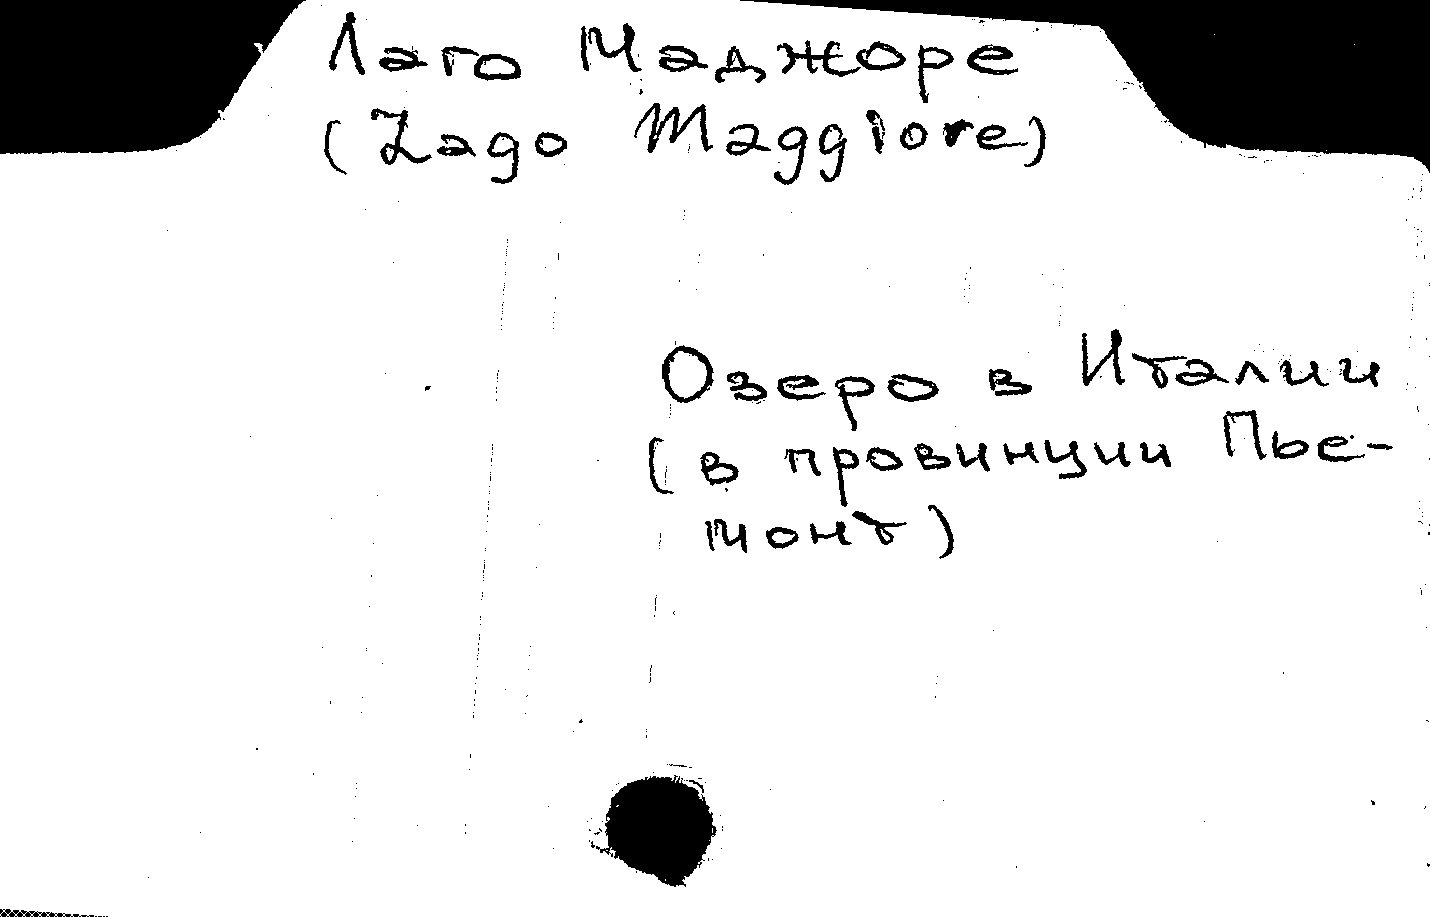 Лаго Маджоре
(Lago Maggiore)
Озеро в Италии
(в провинции Пье-
монт)